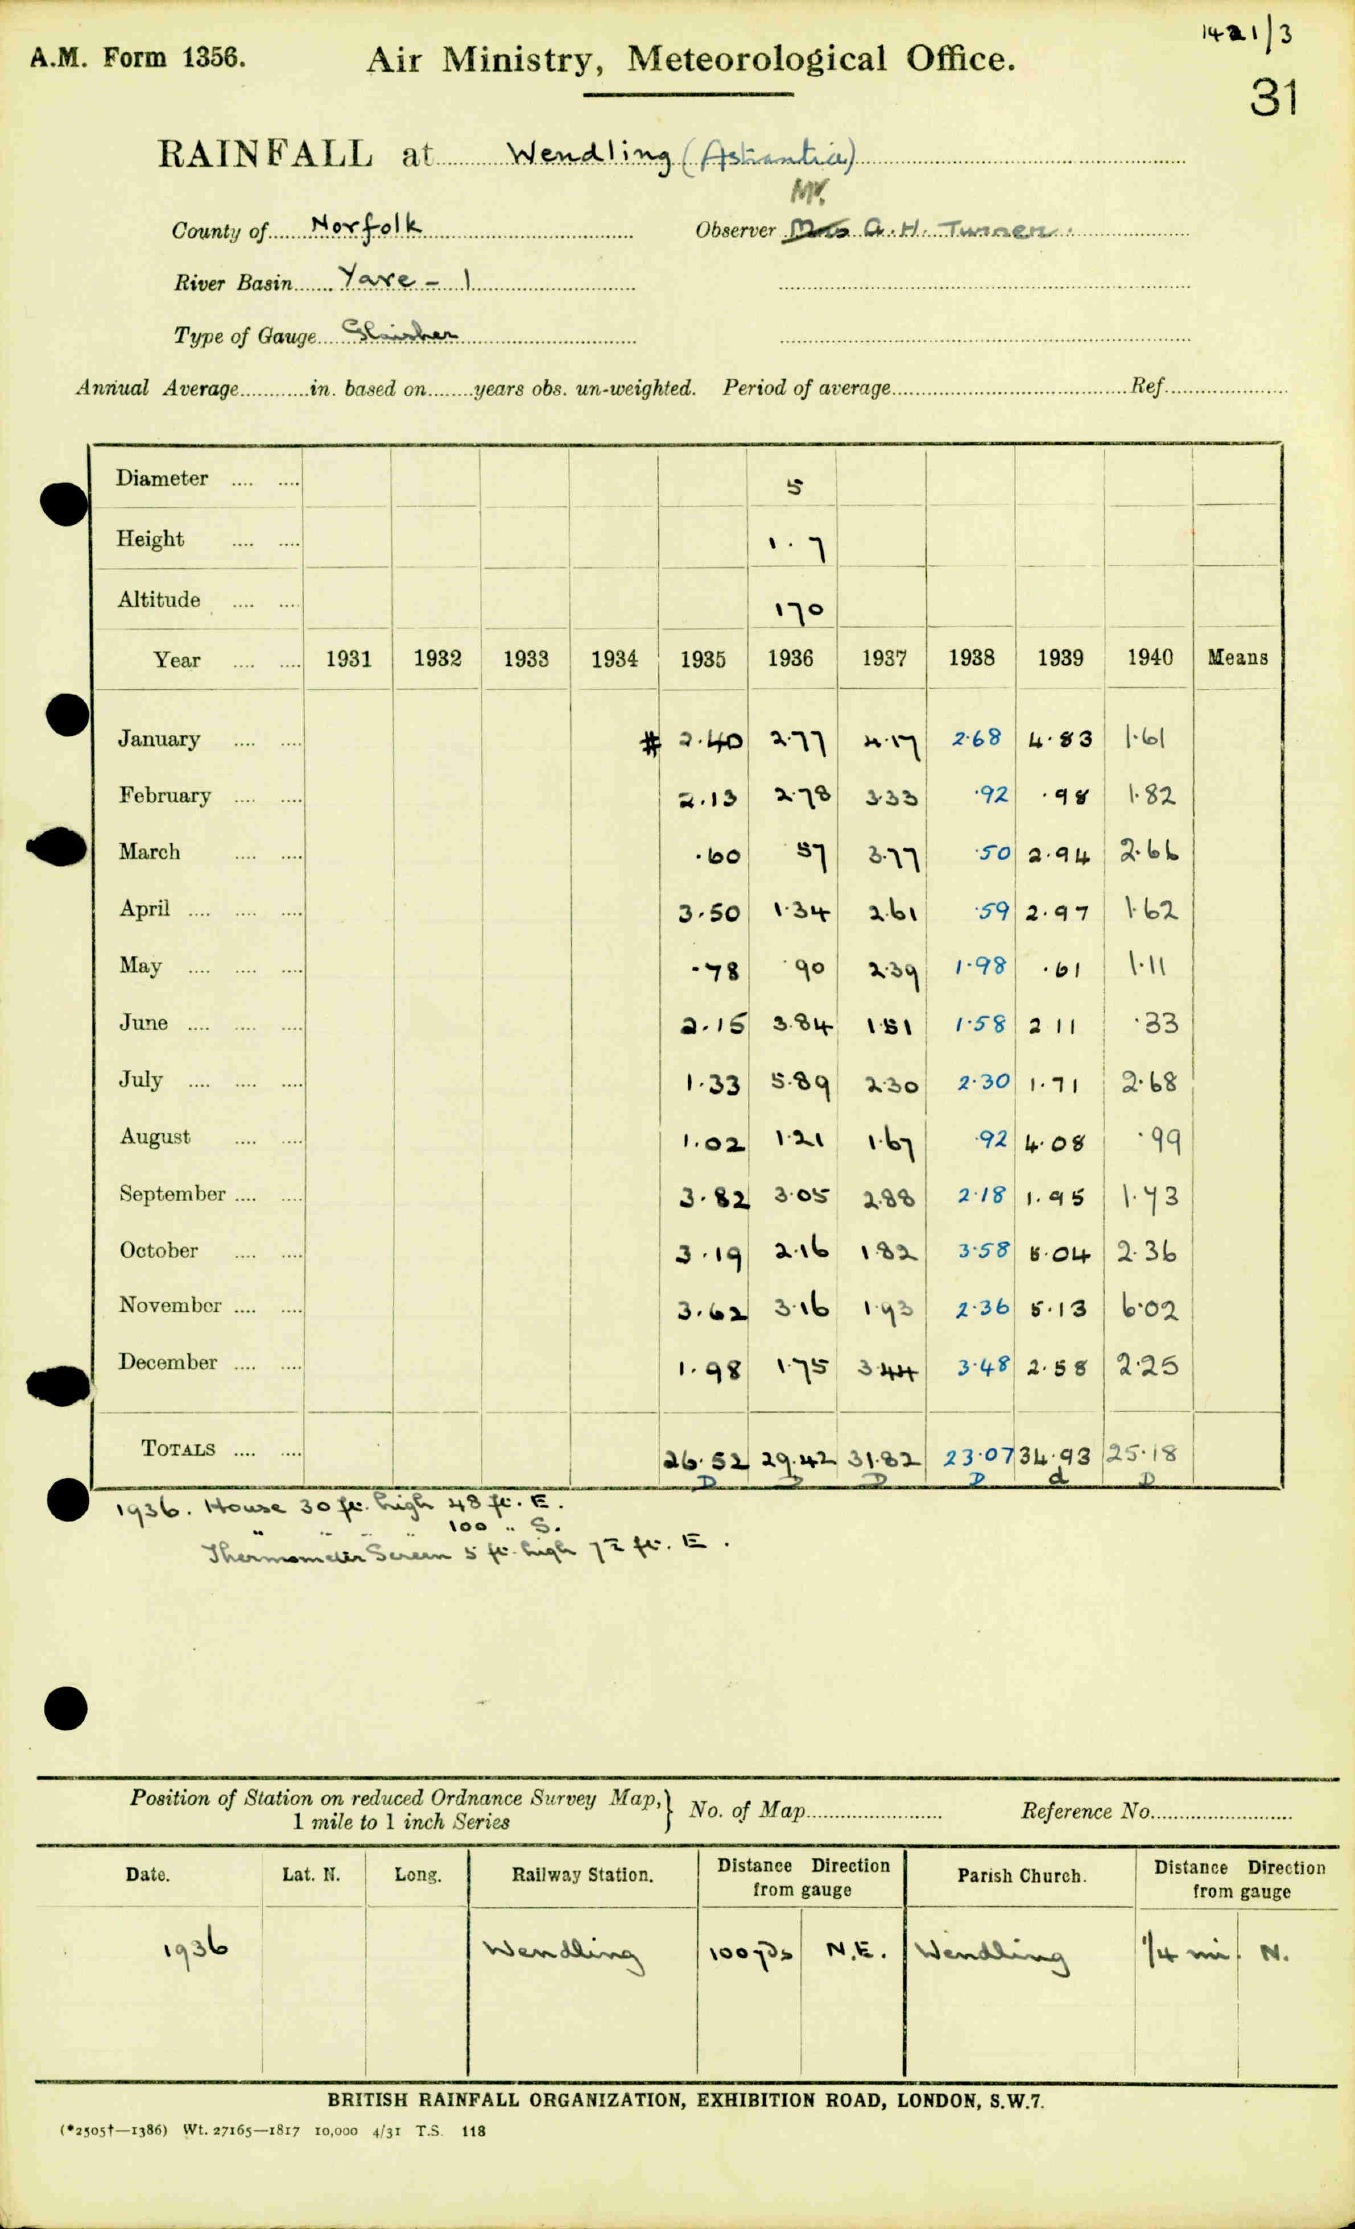 1421/3
A.M. Form 1356. Air Ministry, Meteorological Office.
31
RAINFALL at Wendling (Astrantia)
Mr.
County of Norfolk Observer Mrs A. H. Turner.
River Basin Yare - 1
Type of Gauge Glaisher
Annual Average in. based on years obs. un-weighted. Period of average Ref.
Diameter 5
Height 1.7
Altitude 170
Year 1931 1932 1933 1934 1935 1936 1937 1938 1939 1940 Means
January # 2.40 2.77 4.17 2.68 4.83 1.61
February 2.13 2.78 3.33 .92 .98 1.82
March .60 57 3.77 .50 2.94 2.66
April 3.50 1.34 2.61 .59 2.97 1.62
May .78 .90 2.39 1.98 .61 1.11
June 2.15 3.84 1.51 1.58 2 11 .33
July 1.33 5.89 2.30 2.30 1.71 2.68
August 1.02 1.21 1.67 .92 4.08 .99
September 3.82 3.05 2.88 2.18 1.95 1.73
October 3.19 2.16 1.82 3.58 5.04 2.36
November 3.62 3.16 1.93 2.36 5.13 6.02
December 1.98 1.75 3.44 3.48 2.58 2.25
TOTALS 26.52 29.42 31.82 23.07 34.93 25.18
D D D D d D
1936. House 30 ft. high 48 ft. E.
" " " " 100 " S.
Thermometer Screen 5 ft. high 7½ ft. E.
Position of Station on reduced Ordnance Survey Map, } No. of Map Reference No.
1 mile to 1 inch Series
Date. Lat. N. Long. Railway Station. Distance Direction from gauge Parish Church. Distance Direction from gauge
1936 Wendling 100 yds N.E. Wendling 1/4 mi. N.
BRITISH RAINFALL ORGANIZATION, EXHIBITION ROAD, LONDON, S.W.7.
(*2505†—1386) Wt. 27165—1817 10,000 4/31 T.S. 118